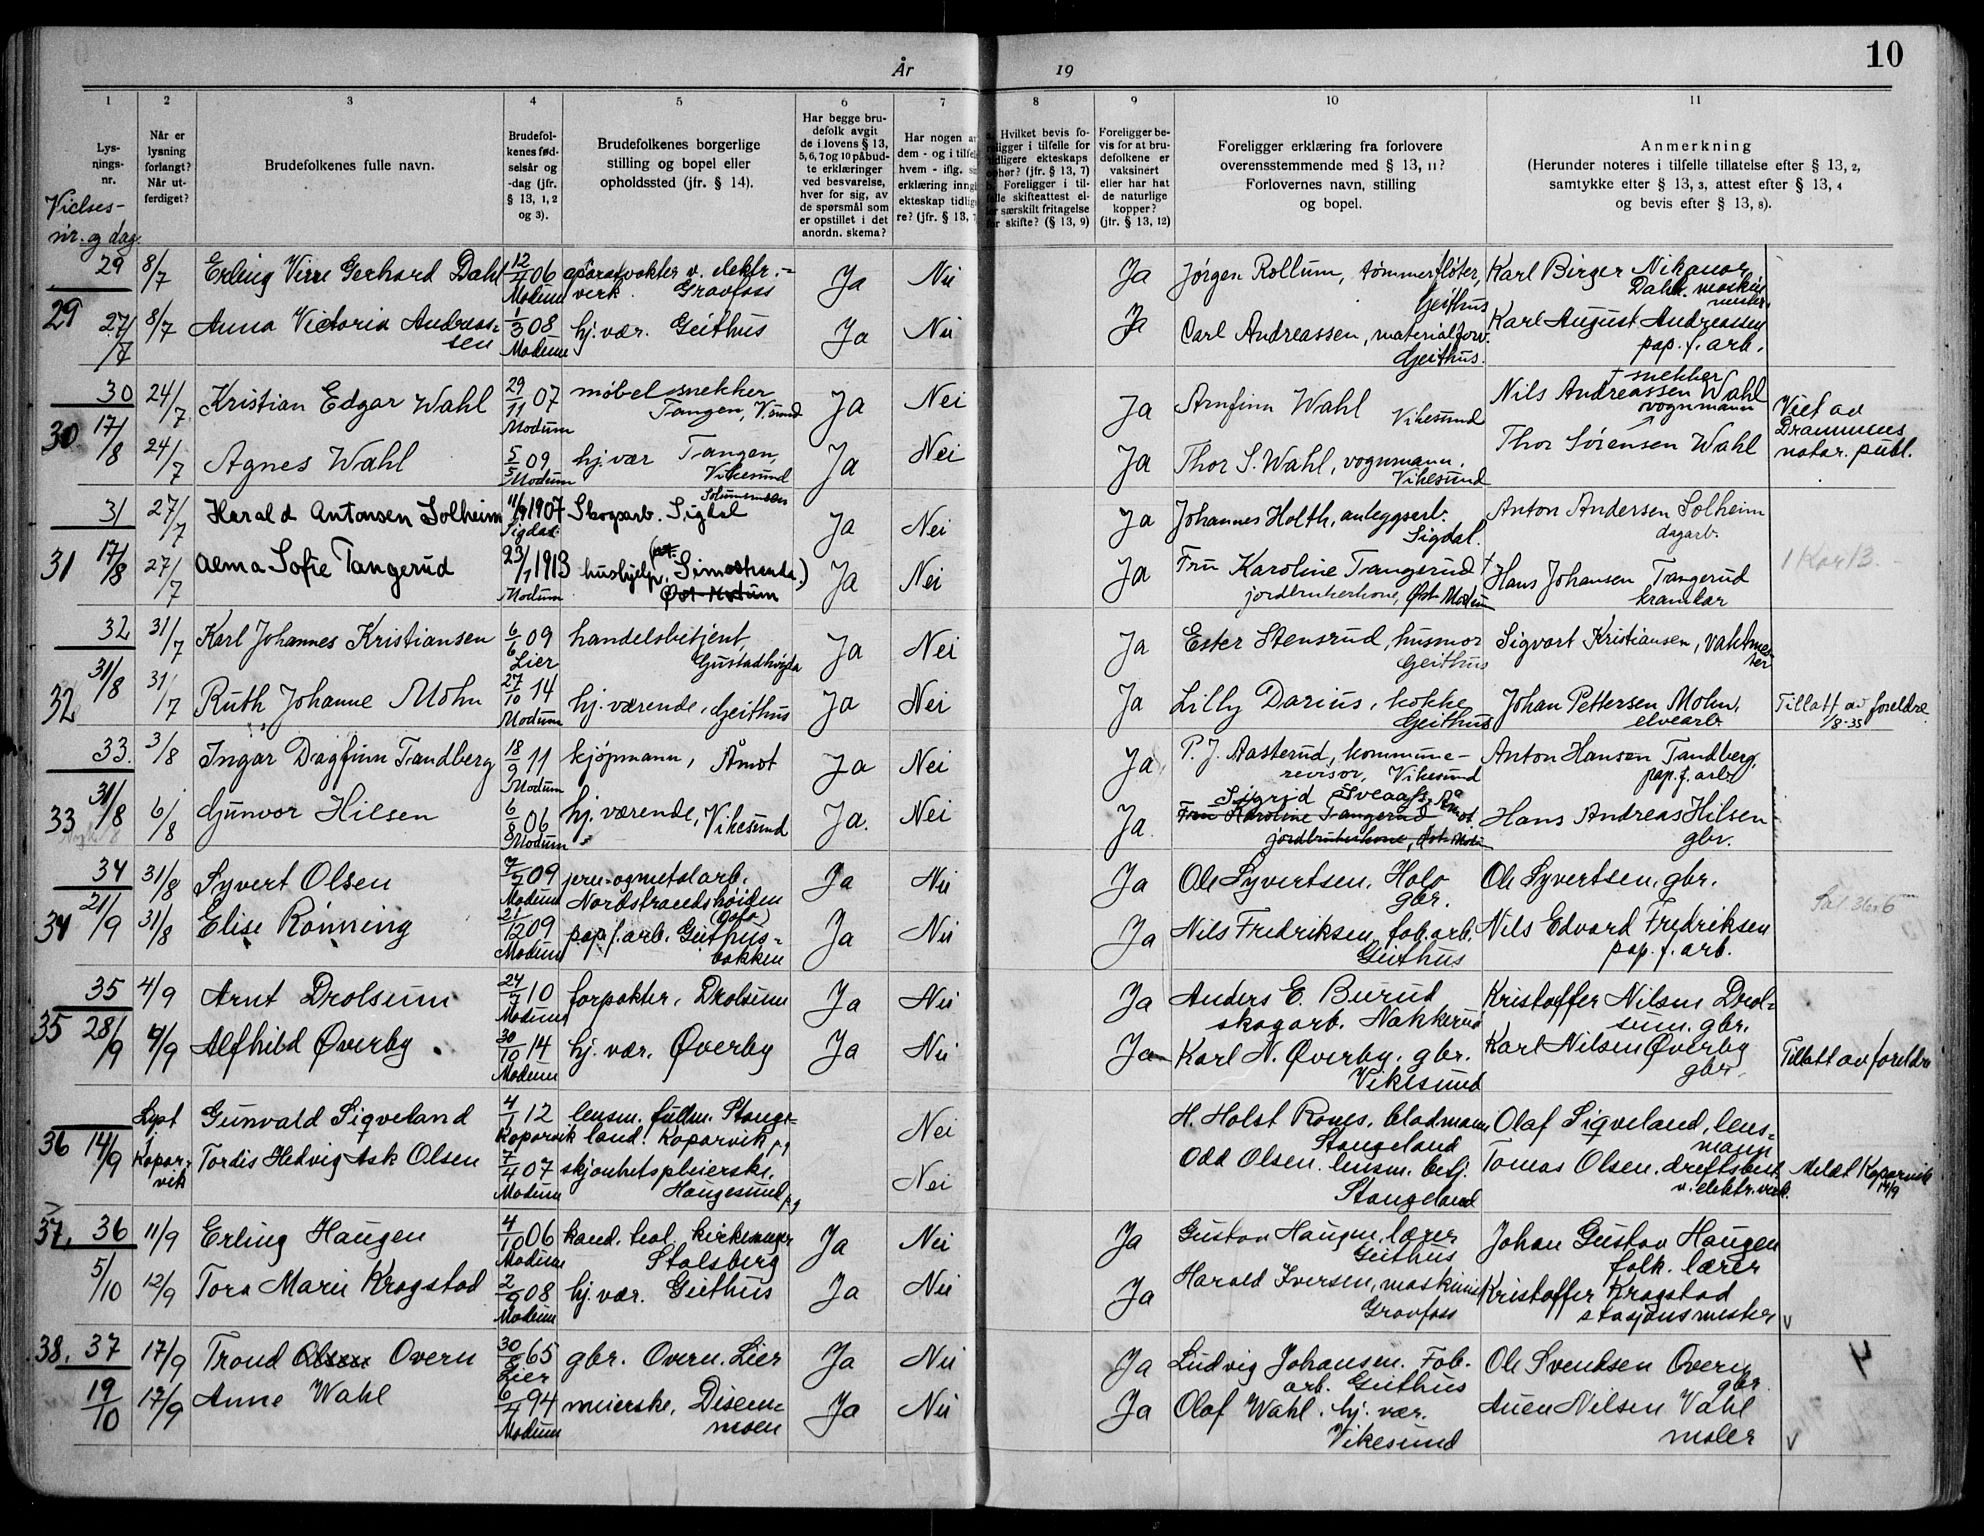 10
År
19
1
2
3
4
5
6
7
8
9
10
11
Lys-
nings-
nr.
Vielses-
nr. og dag.
Når er
lysning
forlangt?
Når ut-
ferdiget?
Brudefolkenes fulle navn.
Brudefol-
kenes fød-
selsår og
-dag (jfr.
§ 13, 1, 2
og 3).
Brudefolkenes borgerlige
stilling og bopel eller
opholdssted (jfr. § 14).
Har begge bru-
defolk avgit
de i lovens § 13,
5, 6, 7 og 10 påbud-
te erklæringer
ved besvarelse,
hver for sig, av
de spørsmål som
er opstillet i det
anordn. skema?
Har nogen av
dem - og i tilfelle
hvem - iflg. sin
erklæring inngått
ekteskap tidlige-
re? (jfr. § 13, 7
a. Hvilket bevis fo-
religger i tilfelle for
tidligere ekteskaps
ophør? (jfr. § 13, 7)
b. Foreligger i til-
felle skifteattest el-
ler særskilt fritagelse
for skifte? (§ 13, 9)
Foreligger be-
vis for at bru-
defolkene er
vaksinert
eller har hat
de naturlige
kopper?
(jfr. § 13, 12)
Foreligger erklæring fra forlovere
overensstemmende med § 13, 11?
Forlovernes navn, stilling
og bopel.
Anmerkning
(Herunder noteres i tilfelle tillatelse efter § 13, 2,
samtykke efter § 13, 3, attest efter § 13, 4
og bevis efter § 13, 8).
29 8/7 Erling Gerhard Dahl 12/4 06 Modum aparatvakter v. elektr.-
verk. Gravfoss Ja Nei Ja Jørgen Rollum, tømmerfløter,
Geithus Karl Birger Nikanor
Dahl. maskin
mester
29 27/7 8/7 Anna Victoria Andreas-
sen 1/3 08 Modum hj. vær. Geithus Ja Nei Ja Carl Andreassen, materialforv.
Geithus. Karl August Andreassen
pap. f. arb.
30 24/7 Kristian Edgar Wahl 29/11 07 Modum møbelsnekker
Tangen, V.sund Ja Nei Ja Arnfinn Wahl Vikesund Nils Andreassen Wahl
snekker Viet av
Drammens
notar. publ.
30 17/8 24/7 Agnes Wahl 5/5 09 Modum hj. vær Tangen,
Vikesund Ja Nei Ja Thor S. Wahl, vognmann,
Vikesund vognmann
Thor Sørensen Wahl
31 27/7 Harald Antonsen Solheim 11/9 1907 Sigdal Skogsarb. Sigdal Ja Nei Ja Johannes Holth, anleggsarb.
Sigdal. Anton Andersen Solheim
dagarb.
31 17/8 27/7 Alma Sofie Tangerud 23/1 1913 Modum hushjelp, Simostranda.)
Øst-Modum Ja Nei Ja Fru Karoline Tangerud
jordbrukerkone, Øst. Modum † Hans Johansen Tangerud
kramkar 1 Kor 13.
32 31/7 Karl Johannes Kristiansen 6/6 09 Lier handelsbetjent,
Gustadhøgda Ja Nei Ja Ester Stensrud, husmor
Geithus Sigvart Kristiansen, vaktmes-
ter
32 31/8 31/7 Ruth Johanne Mohn 27/10 14 Modum hj. værende, Geithus Ja Nei Ja Lilly Darius, kokke
Geithus Johan Pettersen Mohn,
elvearb. Tillatt av foreldre
1/8-35
33. 3/8 Ingar Dagfinn Tandberg 18/9 11 Modum kjøpmann, Åmot Ja Nei Ja P. J. Aasterud, kommune-
revisor, Vikesund Anton Hansen Tandberg,
pap. f. arb
33 31/8 6/8 Gunvor Hilsen 6/8 06 Modum hj. værende, Vikesund Ja. Nei Ja. Sigrid Sveaass, Åmot
Fru Karoline Tangerud
jordbrukerkone, Øst. Modum Hans Andreas Hilsen
gbr.
34 31/8 Syvert Olsen 7/7 09 Modum jern- og metalarb.
Nordstrandshøiden
(Oslo) Ja Nei Ja Ole Syvertsen. Holo
gbr. Ole Syvertsen, gbr.
34 21/9 31/8 Elise Rønning 21/12 09 Modum pap. f. arb. Geithus-
bakken Ja Nei Ja Nils Fredriksen, fab. arb.
Geithus Nils Edvard Fredriksen
pap. f. arb.
35 4/9 Arnt Drolsum 24/7 10 Modum forpakter, Drolsum Ja Nei Ja Anders E. Burud
skogarb. Nakkerud Kristoffer Nilsen Drol-
sum. gbr.
35 28/9 4/9 Alfhild Øverby 30/10 14 Modum hj. vær. Øverby Ja Nei Ja Karl N. Øverby. gbr.
Vikesund Karl Nilsen Øverby
gbr. Tillatt av foreldre
Lyst
i
Kopar-
vik Gunvald Sigveland 4/1 12 Koparvik lensm. fullm. Stange-
land. Koparvik p.g Nei H. Holst Rones. bladmann
Stangeland Olaf Sigveland, lens-
mann
36 14/9 Tordis Hedvig Ask Olsen 7/4 07 Modum skjønhetspleierske.
Haugesund p.g Nei Odd Olsen. lensm. betj.
Stangeland Tomas Olsen. driftsbest.
v. elektr. verk. Meldt Koparvik
14/9
37. 36 11/9 Erling Haugen 4/10 06 Modum kand. teol.
Stalsberg Ja Nei Ja Gustav Haugen, lærer
Geithus Johan Gustav Haugen
folk. lærer
5/10 12/9 Tora Marie Kragstad 2/9 08 Modum hj. vær. Geithus Ja Nei Ja Harald Iversen, maskinist
Gravfoss Kristoffer Kragstad
stasjonsmester v
38. 37 17/9 Trond Olsen Overn 30/ 65 Lier gbr. Overn. Lier Ja Nei Ja Ludvig Johansen. Fab.
arb. Geithus Ole Svendsen Overn
gbr.
19/10 17/9 Anne Wahl 6/4 94 Modum meierske, Disen-
moen Ja Nei Ja Olaf Wahl. hj. vær.
Vikesund Nilsen Vahl
maler v